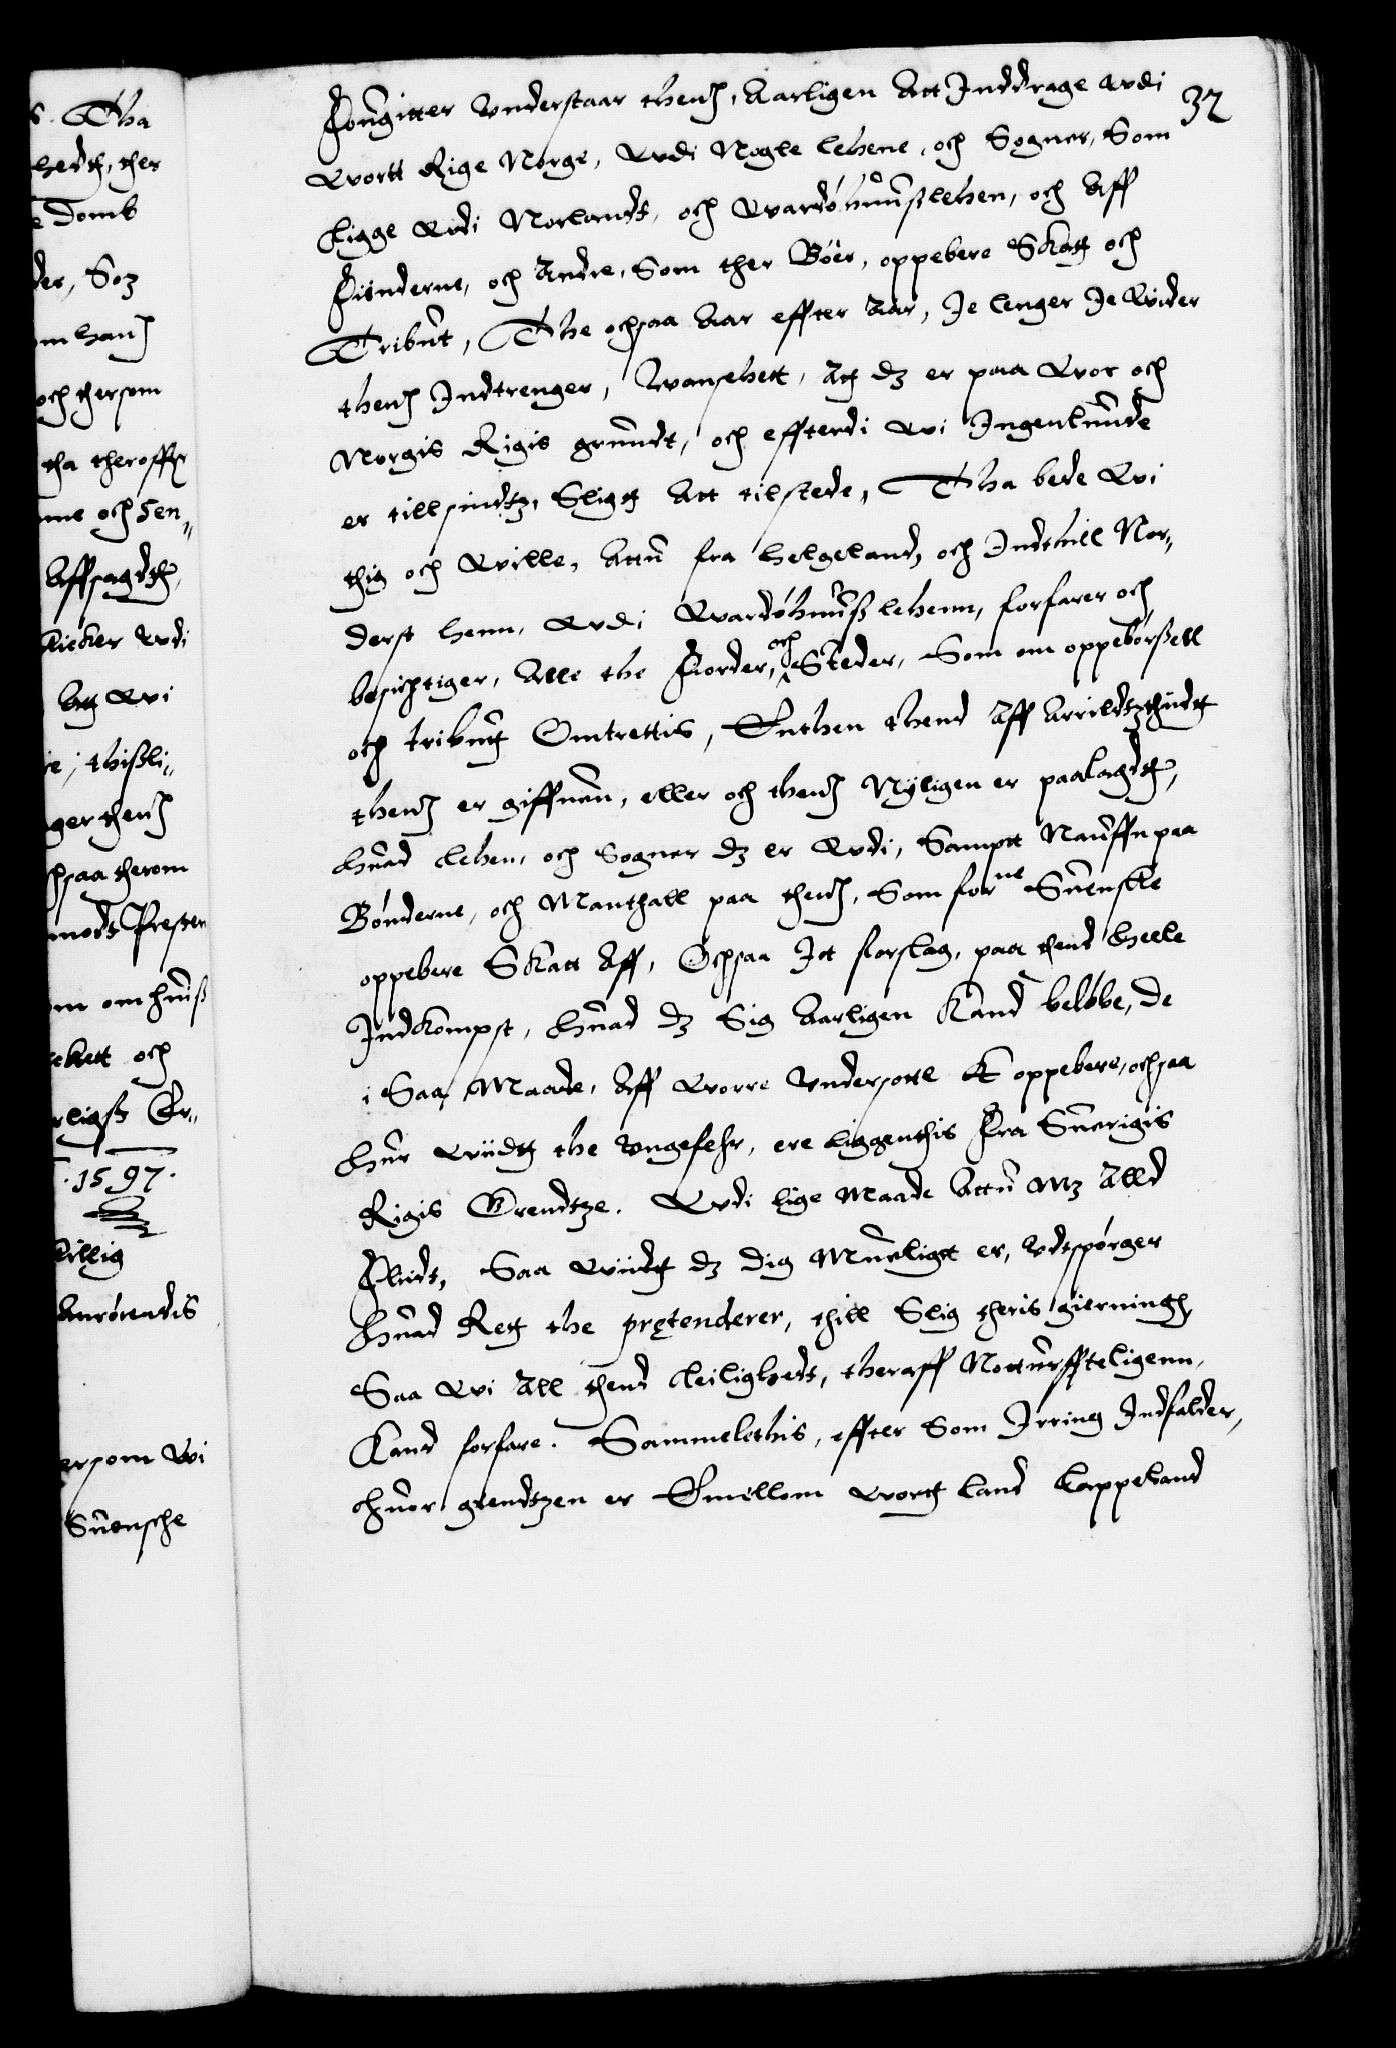 s. Tha
hedt, ther
e Domb
der, Som
om hans
och thersom
tha theroffr
nne och sen,,
Affsagdtt,
kicker wdi
Att Wi
re, thisli,,
ger thend
chsaa therom
modt Presten
om om huus
kett och
rligst Er,,
. 1597.
killig
Anrørendis
ersom Wi
Suensche
37
Fougitter Understaar thend, Aarligen Att Inddrage wdi
Wortt Rige Norge, Wdi Nogle lehene, och Sogner, Som
Ligge Wdi Norlandt, och Wardøhuußlehen, och Aff
Finderne, och Andre, Som ther Boer, oppebere Skatt och
Tribut, The ochsaa Aar effter Aar, Je lenger Je Wider
thend Indtrenger, Uanseett, Att dz er paa Wor och
Norgis Rigis grundt, och effterdi Wi Ingenlunde
er tillsindtz, Sligtt Att tilstede, Tha bede Wi
thig och Wille, Attu fra Helgeland, och Indthill Nor,,
derst henn, Wdi Wardøhuußlehenn, forfarer och
besichtiger, Alle the Fiorder, och Steder, Som om oppebørßell
och tributt Omtrettis, Enthen thend Aff Arrildtzthidt
thend er giffuen, eller och thend Nyligen er paalagdtt,
huad Lehen, och Sogner dz er Wdi, Samptt Nauffn paa
Bønderne, och Manthall paa thend, Som forne Suenske
oppebere Skatt Aff, Ochsaa Jt forslag, paa thend heele
Indkompst, huad dz Sig Aarligen Kand beløbe, de
i Saa Maade, Aff Worre Undersotte oppebere, ochsaa
huor Wiidtt the Ungefehr, ere liggenthis Fra Suerigis
Rigis Grendtze. Wdi lige Maade Attu Mz Alld
Fliidt, Saa Wiidtt dz dig Mueligtt er, Udtspørger
huad Rett the prętenderer, thill Slig theris gierningh,
Saa Wi All thend Leilighedt, theraff Nottürffteligenn,
Kand forfare. Sammelethis, effter Som Irring Indfalder,
huor grendtzen er Emellom Wortt land Lappeland